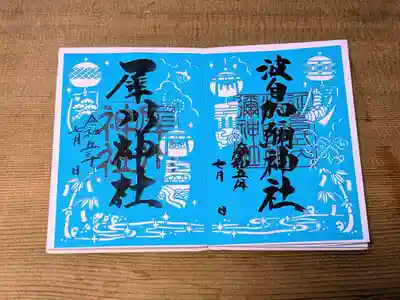 波自加彌神社
令和五年
七月 日
犀川神社
令和五年
七月 日